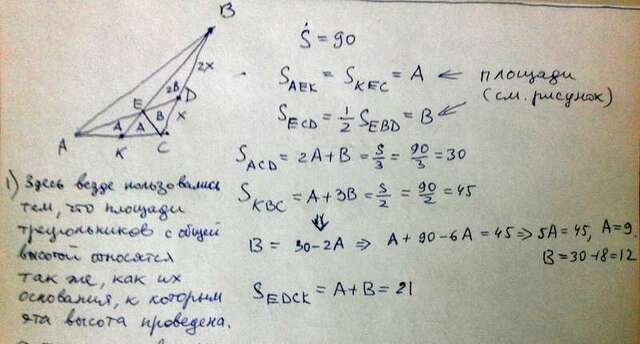 B
2X
2B
E
D
B
X
A
A
A
K
C
Ṡ = 90
S_AEK = S_KEC = A ⇐ площади
(см. рисунок)
S_ECD = 1/2 S_EBD = B
S_ACD = 2A + B = S/3 = 90/3 = 30
S_KBC = A + 3B = S/2 = 90/2 = 45
⇓
B = 30 - 2A ⇒ A + 90 - 6A = 45 ⇒ 5A = 45, A = 9.
B = 30 - 18 = 12
S_EDCK = A + B = 21
1) Здесь везде пользовались
тем, что площади
треугольников с общей
высотой относятся
так же, как их
основания, к которым
эта высота проведена.